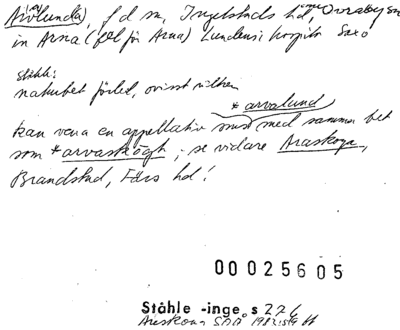 Arvlunda, f d sn, Ingelstads hd, Övraby sn
in Arna (fel för Arua) Lundensi hospit. Saxo
Ståhle:
naturbet förled, ovisst vilken
* arvalund
kan vara en appellativ med samma bet
som *arvaskōgh, se vidare Araskoga,
Brandstad, Färs hd!
00025605
Ståhle -inge s 226
Areskoug SOÄ 1982:s9 ff